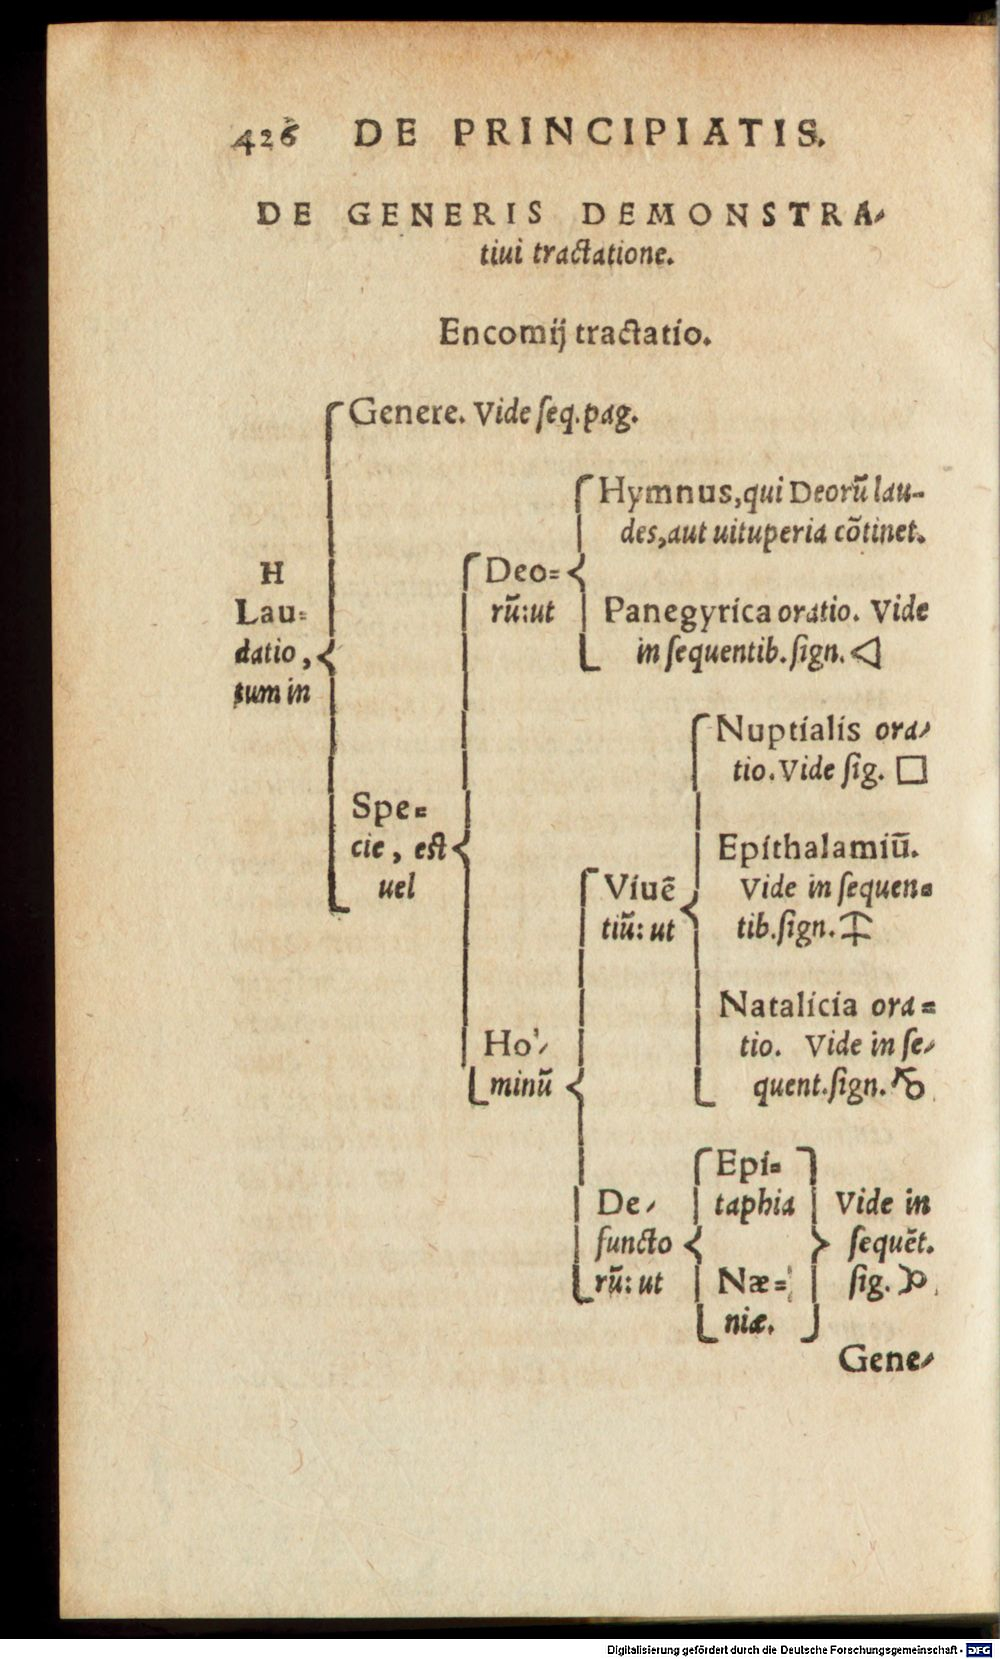 426 DE PRINCIPIATIS.
DE GENERIS DEMONSTRA-
tiui tractatione.
Encomij tractatio.
Genere. Vide ſeq. pag.
H
Lau=
datio,
tum in
Spe=
cie, eſt
uel
Deo=
rū: ut
Hymnus, qui Deorū lau-
des, aut uituperia cōtinet.
Panegyrica oratio. Vide
in ſequentib. ſign. ◁
Ho-
minū
Viuē
tiū: ut
Nuptialis ora-
tio. Vide ſig. □
Epithalamiū.
Vide in ſequen=
tib. ſign.
Natalicia ora=
tio. Vide in ſe-
quent. ſign.
De-
functo
rū: ut
Epi=
taphia
Næ=
niæ.
Vide in
ſequēt.
ſig.
Gene-
Digitalisierung gefördert durch die Deutsche Forschungsgemeinschaft - DFG